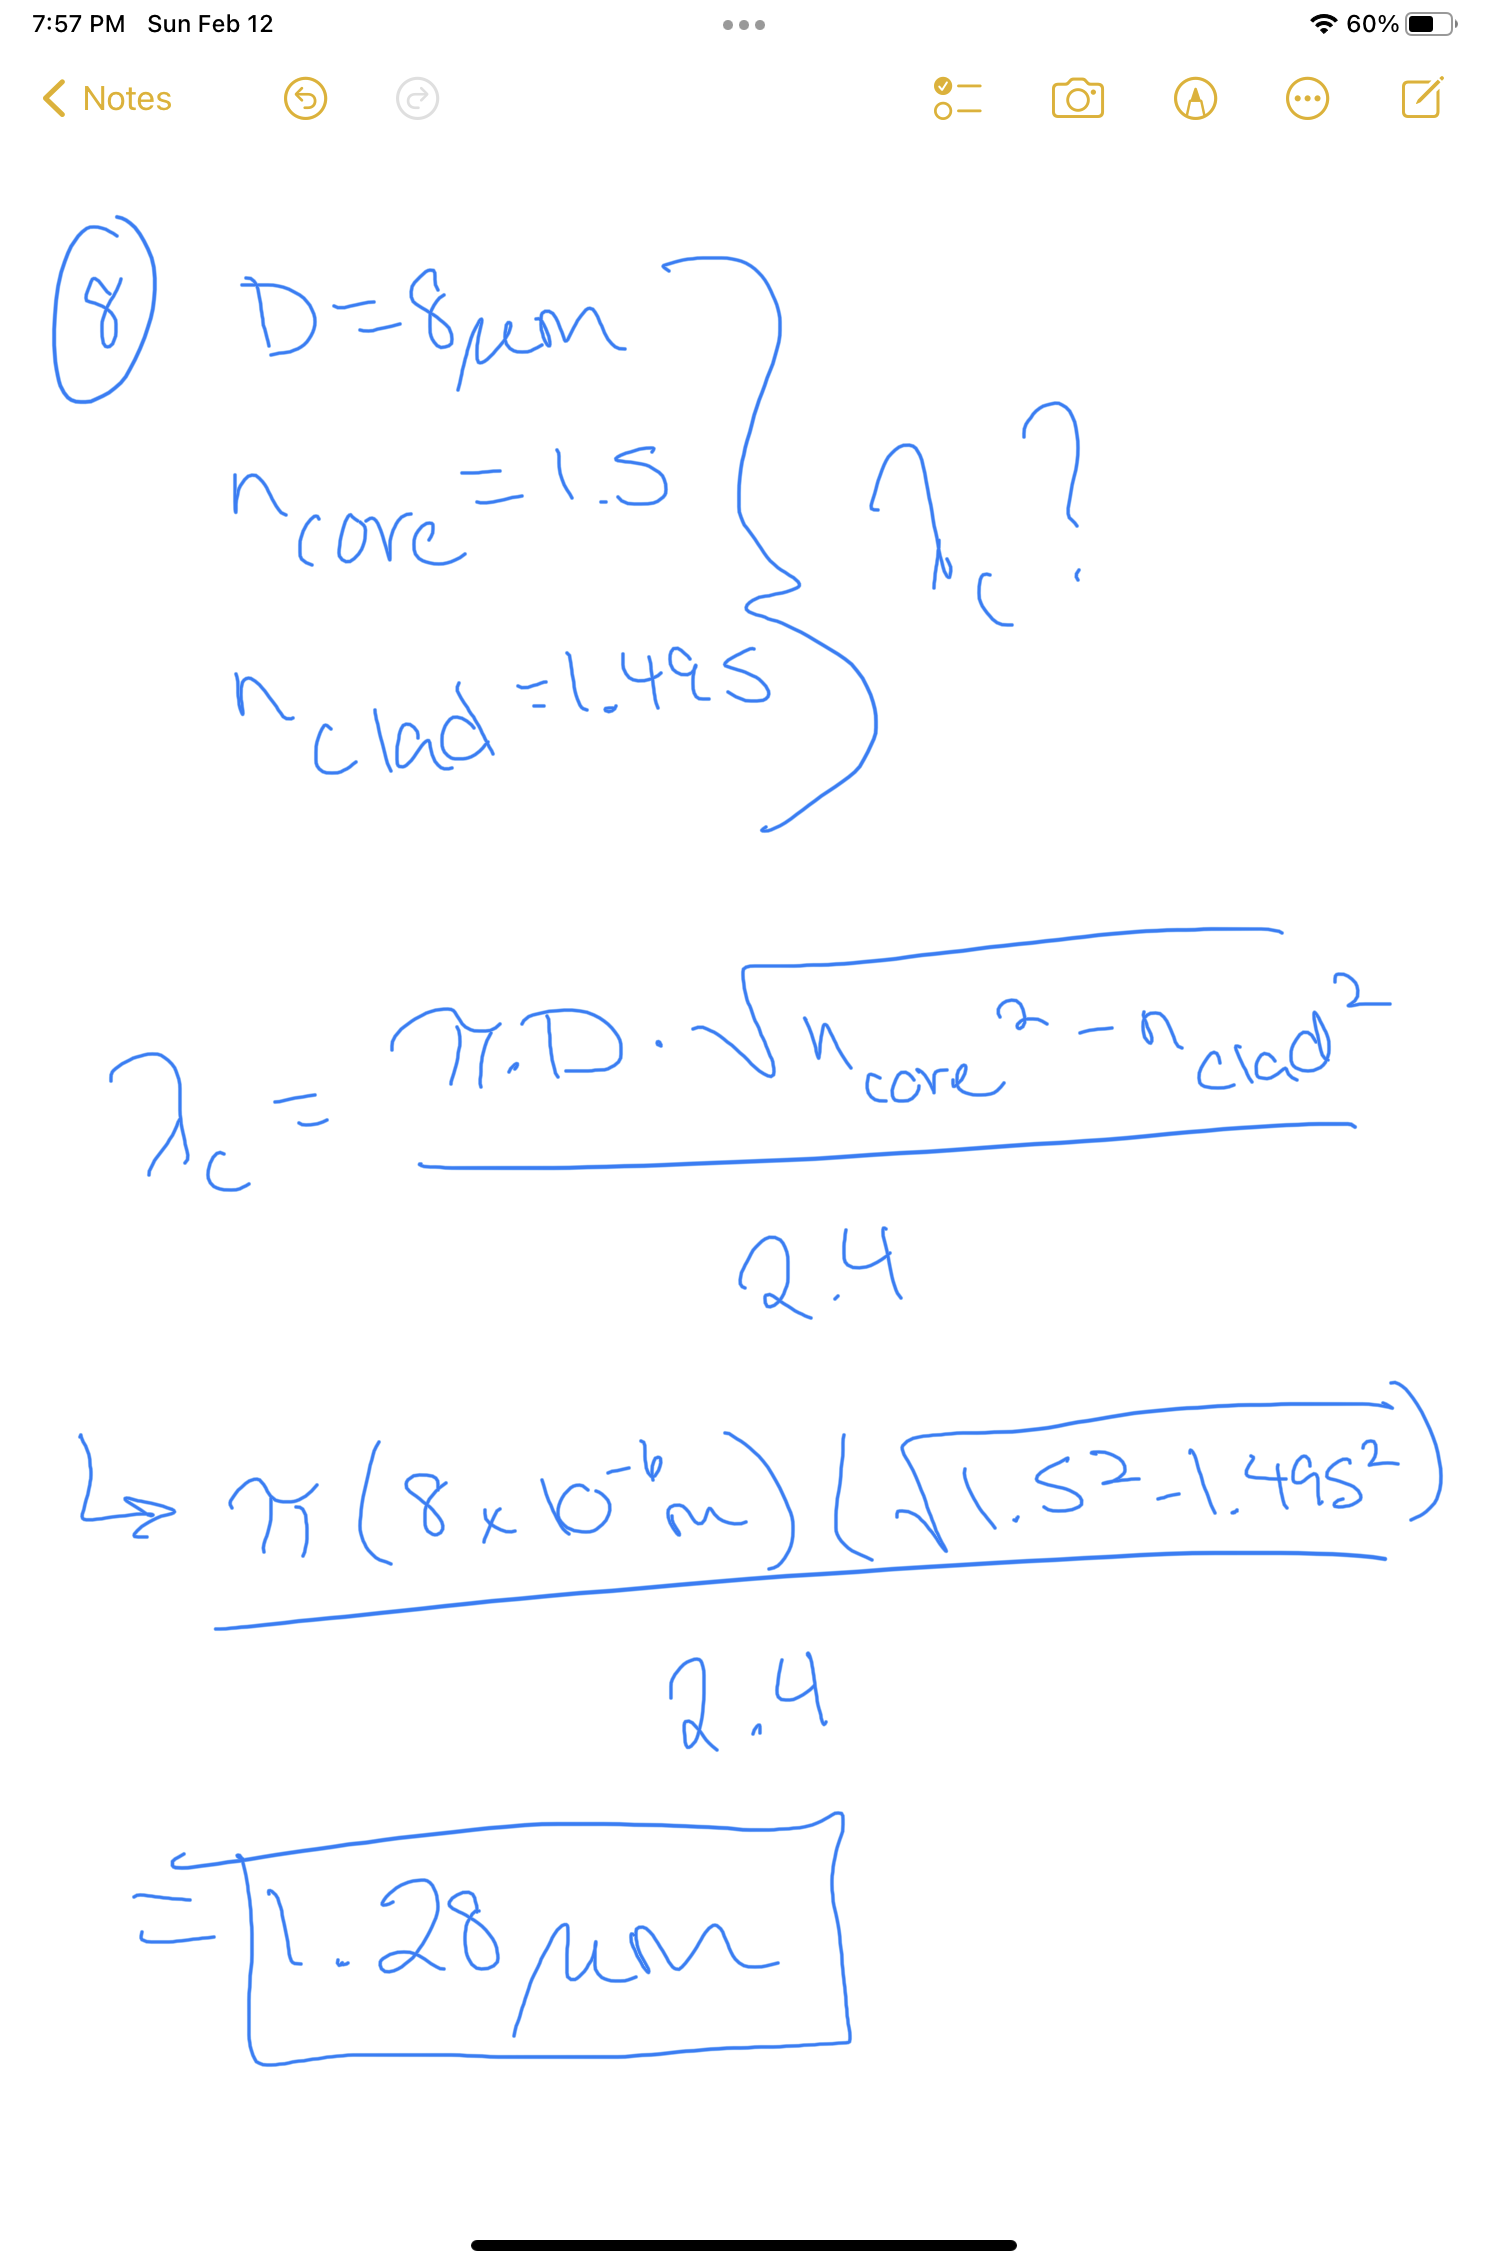 7:57 PM Sun Feb 12 60%
Notes
8 D=8μm
n core = 1.5
λc?
n clad = 1.495
λc = π.D.√(n core² - n clad²)
2.4
↳ π(8x10⁻⁶m)(√1.5² - 1.495²)
2.4
= 1.28μm